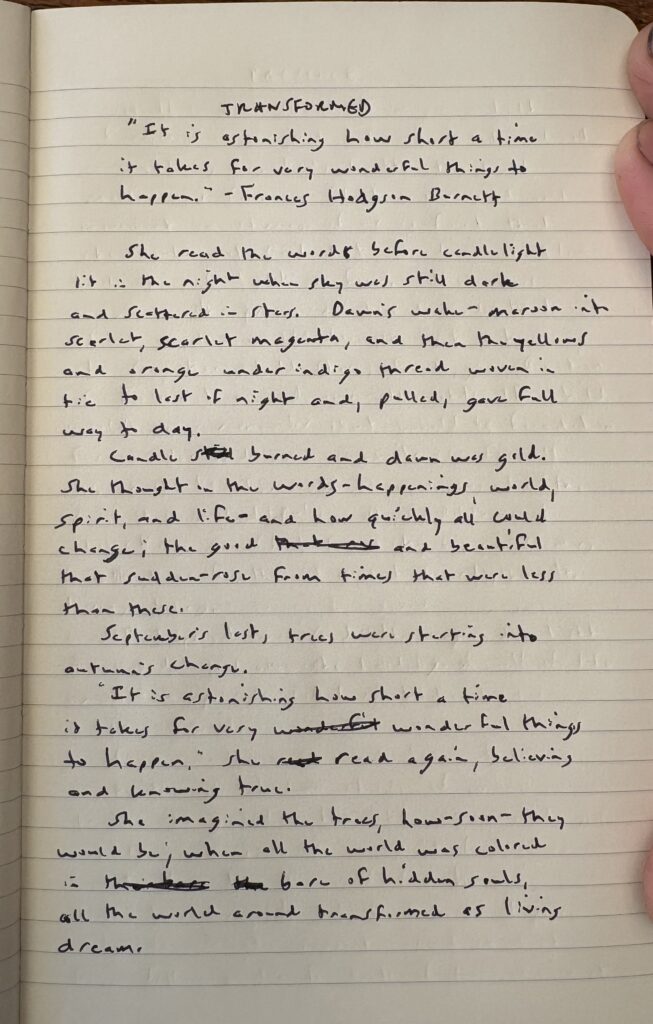 TRANSFORMED
"It is astonishing how short a time
it takes for very wonderful things to
happen." - Frances Hodgson Burnett
She read the words before candlelight
lit in the night when sky was still dark
and scattered in stars. Dawn's wake - maroon into
scarlet, scarlet magenta, and then the yellows
and orange under indigo thread woven in
tie to last of night and, pulled, gave full
way to day.
Candle burned and dawn was gold.
She thought on the words - happenings, world,
spirit, and life - and how quickly all could
change; the good and beautiful
that sudden-rose from times that were less
than these.
September's last, trees were starting into
autumn's change.
"It is astonishing how short a time
it takes for very wonderful wonderful things
to happen," she read again, believing
and knowing true.
She imagined the trees, how - soon - they
would be, when all the world was colored
in bare of hidden souls,
all the world around transformed as living
dream.